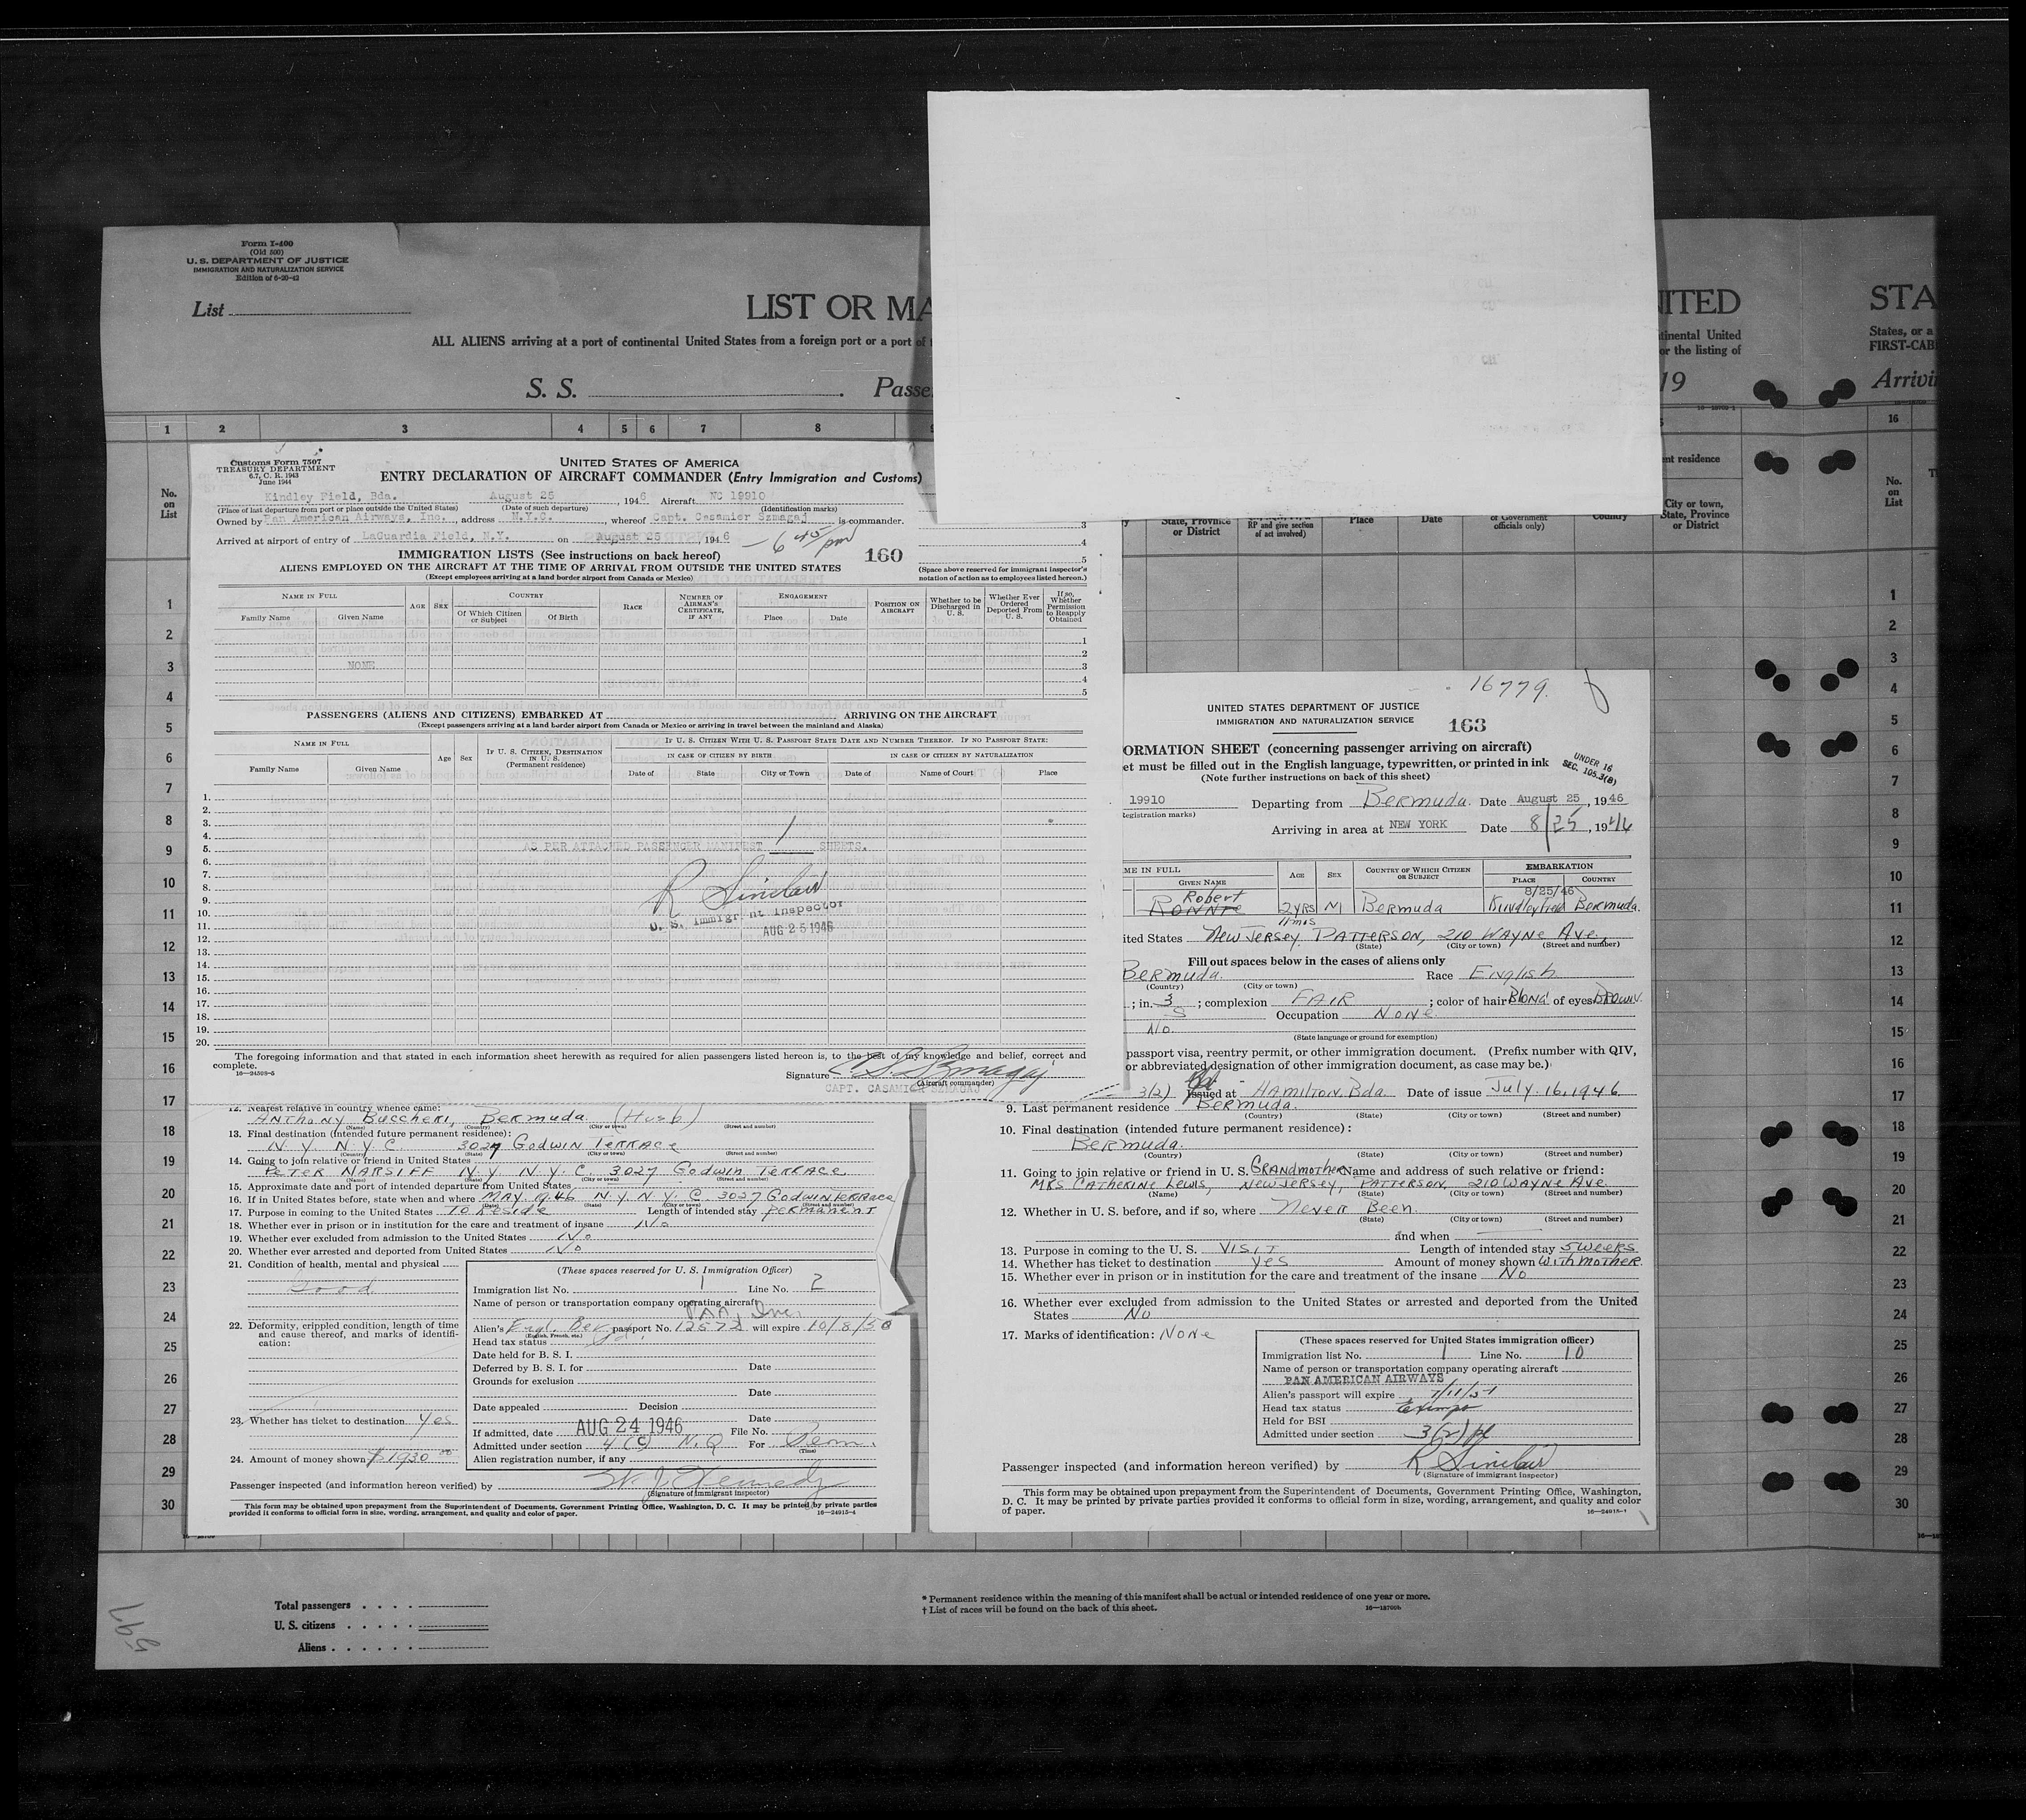 Form I-400
(Old 500)
U. S. DEPARTMENT OF JUSTICE
IMMIGRATION AND NATURALIZATION SERVICE
Edition of 6-20-42
List
LIST OR MA
ALL ALIENS arriving at a port of continental United States from a foreign port or a port of
S. S. Passe
1 2 3 4 5 6 7 8
No.
on
List
1
2
3
4
5
6
7
8
9
10
11
12
13
14
15
16
17
18
19
20
21
22
23
24
25
26
27
28
29
30
Customs Form 7507
TREASURY DEPARTMENT
6.7, C. R. 1943
June 1944
UNITED STATES OF AMERICA
ENTRY DECLARATION OF AIRCRAFT COMMANDER (Entry Immigration and Customs)
Kindley Field, Bda. August 25, 1946 Aircraft NC 19910
(Place of last departure from port or place outside the United States) (Date of such departure) (Identification marks)
Owned by Pan American Airways, Inc., address N.Y.C., whereof Capt. Casamier Szmagaj is commander.
Arrived at airport of entry of LaGuardia Field, N.Y. on August 25 1946 - 6 45/pm
IMMIGRATION LISTS (See instructions on back hereof) 160
ALIENS EMPLOYED ON THE AIRCRAFT AT THE TIME OF ARRIVAL FROM OUTSIDE THE UNITED STATES
(Except employees arriving at a land border airport from Canada or Mexico)
3
4
5
(Space above reserved for immigrant inspector's
notation of action as to employees listed hereon.)
NAME IN FULL
Family Name Given Name
AGE SEX
COUNTRY
Of Which Citizen or Subject Of Birth
RACE
NUMBER OF AIRMAN'S CERTIFICATE, IF ANY
ENGAGEMENT
Place Date
POSITION ON AIRCRAFT
Whether to be Discharged in U. S.
Whether Ever Ordered Deported From U. S.
If so, Whether Permission to Reapply Obtained
1
2
NONE 3
4
5
PASSENGERS (ALIENS AND CITIZENS) EMBARKED AT ARRIVING ON THE AIRCRAFT
(Except passengers arriving at a land border airport from Canada or Mexico or arriving in travel between the mainland and Alaska)
NAME IN FULL
Family Name Given Name
Age Sex
IF U. S. CITIZEN, DESTINATION IN U. S. (Permanent residence)
IF U. S. CITIZEN WITH U. S. PASSPORT STATE DATE AND NUMBER THEREOF. IF NO PASSPORT STATE:
IN CASE OF CITIZEN BY BIRTH IN CASE OF CITIZEN BY NATURALIZATION
Date of State City or Town Date of Name of Court Place
1.
2.
3.
4.
5. AS PER ATTACHED PASSENGER MANIFEST 1 SHEETS.
6.
7.
8. R Sinclair
9.
10. U. S. Immigrant Inspector
11. AUG 25 1946
12.
13.
14.
15.
16.
17.
18.
19.
20.
The foregoing information and that stated in each information sheet herewith as required for alien passengers listed hereon is, to the best of my knowledge and belief, correct and
complete.
16-24598-5
Signature C S Szmagaj
(Aircraft commander)
CAPT. CASAMIER SZMAGAJ
12. Nearest relative in country whence came:
ANTHONY BUCCHERI, BERMUDA. (Husb)
(Name) (Country) (City or town) (Street and number)
13. Final destination (intended future permanent residence):
N.Y. N.Y.C. 3027 GODWIN TERRACE
(Country) (State) (City or town) (Street and number)
14. Going to join relative or friend in United States
PETER NARSIFF N.Y N.Y.C. 3027 GODWIN TERRACE
(Name) (State) (City or town) (Street and number)
15. Approximate date and port of intended departure from United States
16. If in United States before, state when and where MAY. 19.46 N.Y. N.Y. C. 3027 GODWIN TERRACE
(Date) (State) (City or town) (Street and number)
17. Purpose in coming to the United States To Reside Length of intended stay PERMANENT
18. Whether ever in prison or in institution for the care and treatment of insane No
19. Whether ever excluded from admission to the United States No
20. Whether ever arrested and deported from United States No
21. Condition of health, mental and physical
Good
22. Deformity, crippled condition, length of time
and cause thereof, and marks of identifi-
cation:
23. Whether has ticket to destination Yes
24. Amount of money shown $1930 00
(These spaces reserved for U. S. Immigration Officer)
Immigration list No. 1 Line No. 2
Name of person or transportation company operating aircraft
PAA, Inc.
Alien's Engl. Ber passport No. 12572 will expire 10/8/50
(English, French, etc.)
Head tax status
Date held for B. S. I.
Deferred by B. S. I. for Date
Grounds for exclusion
Date
Date appealed Decision
Date
If admitted, date AUG 24 1946 File No.
Admitted under section 4(c) N.Q For Perm.
(Time)
Alien registration number, if any
Passenger inspected (and information hereon verified) by W. J. Kennedy
(Signature of immigrant inspector)
This form may be obtained upon prepayment from the Superintendent of Documents, Government Printing Office, Washington, D. C. It may be printed by private parties
provided it conforms to official form in size, wording, arrangement, and quality and color of paper. 16-24915-4
16779.
UNITED STATES DEPARTMENT OF JUSTICE
IMMIGRATION AND NATURALIZATION SERVICE 163
ORMATION SHEET (concerning passenger arriving on aircraft)
et must be filled out in the English language, typewritten, or printed in ink
(Note further instructions on back of this sheet)
UNDER 16
SEC. 105.3(B)
19910 Departing from Bermuda. Date August 25, 1946
Registration marks)
Arriving in area at NEW YORK Date 8/25, 1946
ME IN FULL AGE SEX COUNTRY OF WHICH CITIZEN OR SUBJECT EMBARKATION
GIVEN NAME PLACE COUNTRY
Robert 8/25/46
RONNIE 2YRS M BERMUDA Kindley Field BERMUDA.
11mos
ited States New Jersey. PATTERSON, 210 WAYNE AVE,
(State) (City or town) (Street and number)
Fill out spaces below in the cases of aliens only
BERMUDA. Race English
(Country) (City or town)
; in. 3 ; complexion FAIR ; color of hair Blond of eyes BROWN.
S Occupation NONE.
No.
(State language or ground for exemption)
passport visa, reentry permit, or other immigration document. (Prefix number with QIV,
or abbreviated designation of other immigration document, as case may be.)
3(2) Issued at HAMILTON Bda Date of issue July. 16, 1946
9. Last permanent residence BERMUDA.
(Country) (State) (City or town) (Street and number)
10. Final destination (intended future permanent residence):
BERMUDA.
(Country) (State) (City or town) (Street and number)
11. Going to join relative or friend in U. S. GRANDMOTHER Name and address of such relative or friend:
MRS CATHERINE LEWIS, NEW JERSEY, PATTERSON, 210 WAYNE AVE
(Name) (State) (City or town) (Street and number)
12. Whether in U. S. before, and if so, where Never Been.
(State) (City or town) (Street and number)
and when
13. Purpose in coming to the U. S. VISIT Length of intended stay 5 WEEKS
14. Whether has ticket to destination Yes Amount of money shown WITH MOTHER.
15. Whether ever in prison or in institution for the care and treatment of the insane No
16. Whether ever excluded from admission to the United States or arrested and deported from the United
States No
17. Marks of identification: NONE
(These spaces reserved for United States immigration officer)
Immigration list No. 1 Line No. 10
Name of person or transportation company operating aircraft
PAN AMERICAN AIRWAYS
Alien's passport will expire 7/11/51
Head tax status Exempt
Held for BSI
Admitted under section 3(2)
Passenger inspected (and information hereon verified) by R Sinclair
(Signature of immigrant inspector)
This form may be obtained upon prepayment from the Superintendent of Documents, Government Printing Office, Washington,
D. C. It may be printed by private parties provided it conforms to official form in size, wording, arrangement, and quality and color
of paper. 16-24915-1
NITED
tinental United
or the listing of
19
nt residence
State, Province
or District
RP and give section
of act involved)
Place
Date
or Government
officials only)
Country
City or town,
State, Province
or District
STA
States, or a
FIRST-CAB
Arrivi
16
No.
on
List
1
2
3
4
5
6
7
8
9
10
11
12
13
14
15
16
17
18
19
20
21
22
23
24
25
26
27
28
29
30
Total passengers
U. S. citizens
Aliens
* Permanent residence within the meaning of this manifest shall be actual or intended residence of one year or more.
† List of races will be found on the back of this sheet. 16-18700b
597